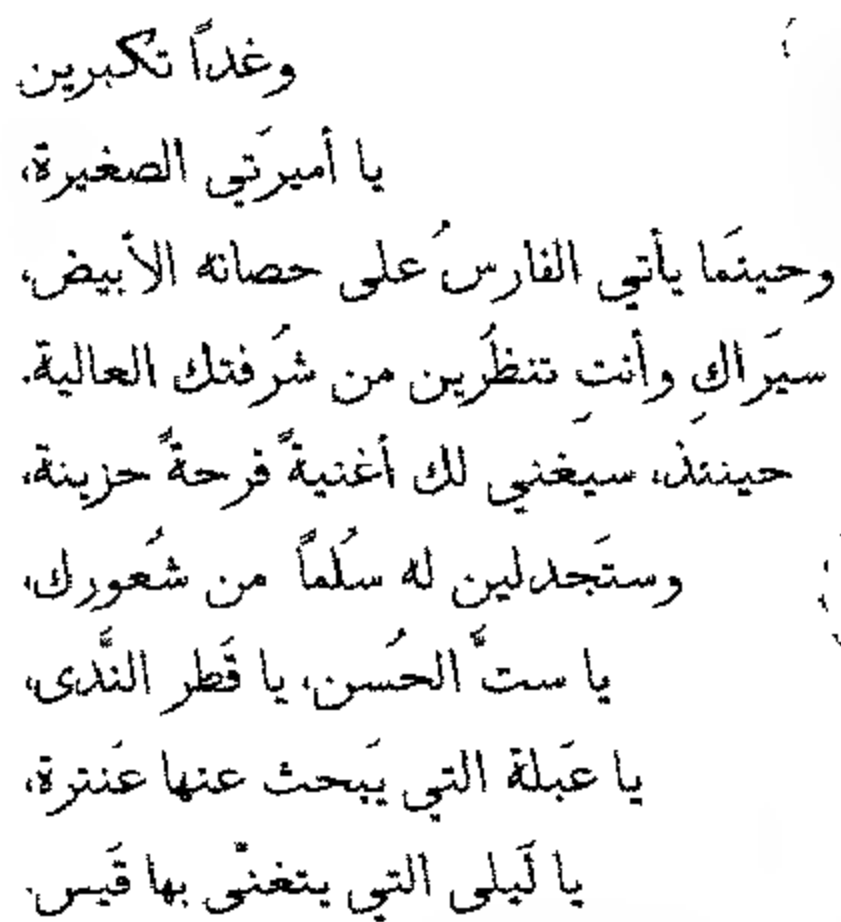 وغداً تكبرين
يا أميرَتي الصغيرة،
وحينَما يأتي الفارسُ على حصانه الأبيض،
سيَراكِ وأنتِ تنظُرين من شُرفتك العالية.
حينئذٍ، سيَغني لك أغنيةً فرحةً حزينة،
وستَجدلين له سلُماً من شُعورك،
يا ستَّ الحُسن، يا قَطر النَّدى،
يا عَبلة التي يَبحث عنها عَنترة،
يا لَيلى التي يتغنّى بها قَيس.